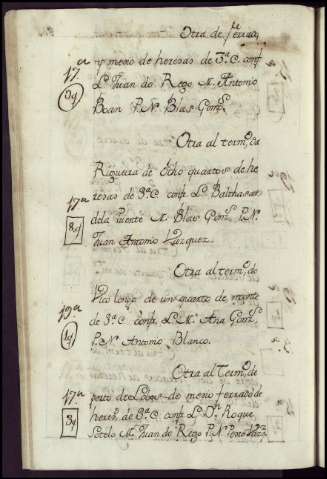 Otra de ferrado
17.ª y medio de heredas de 3.ª C. conf.
L. Juan do Rego M. Antonio
Bean P. N. Blas Gom.ˢ
Otra al term.º de
Riqueira de ocho quartos de he
redas de 3.ª C. conf. L. Balthasar
17.ª dela Puente M. Blas Gom.ˢ P. N.
Juan Antonio Vazquez.
Otra al term.º de
Pico longo de un quarto de monte
17.ª de 3.ª C. conf. L. M. Ana Gom.ˢ
P. N. Antonio Blanco.
Otra al Term.º de
17.ª de medio ferrado de
hered.ˢ de 3.ª C. conf. L. D.ⁿ Roque
Sotelo M. Juan do Rego P. N.